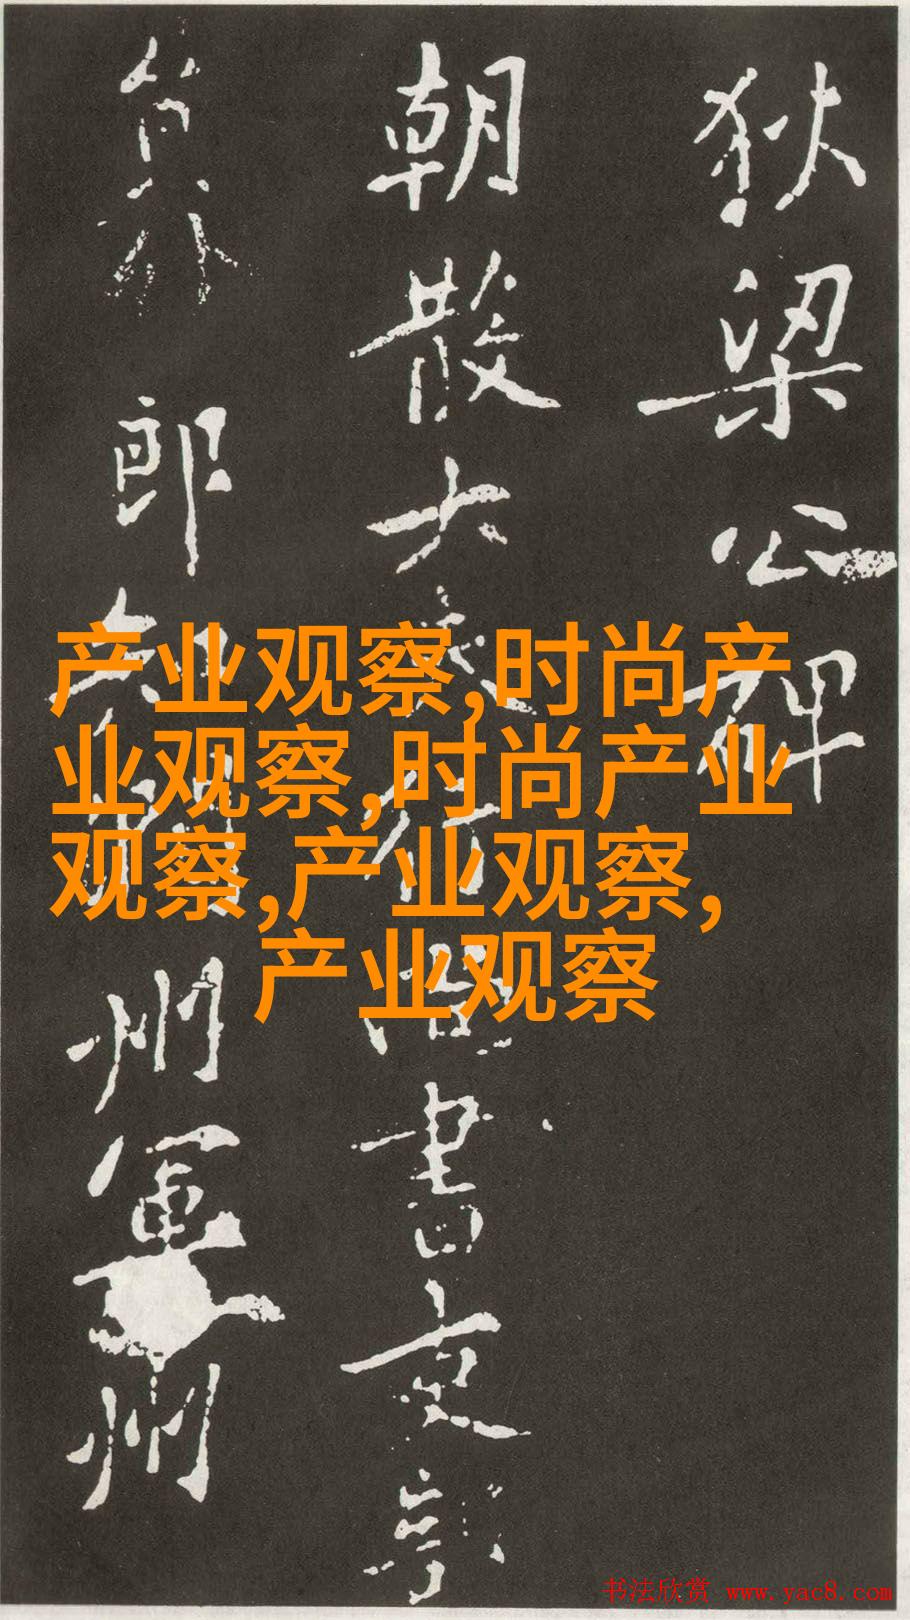 狄梁公碑
朝散大夫行尚書吏
員外郎知潤州軍州
产业观察,时尚产
业观察,时尚产业
观察,产业观察,
产业观察
书法欣赏 www.yac8.com